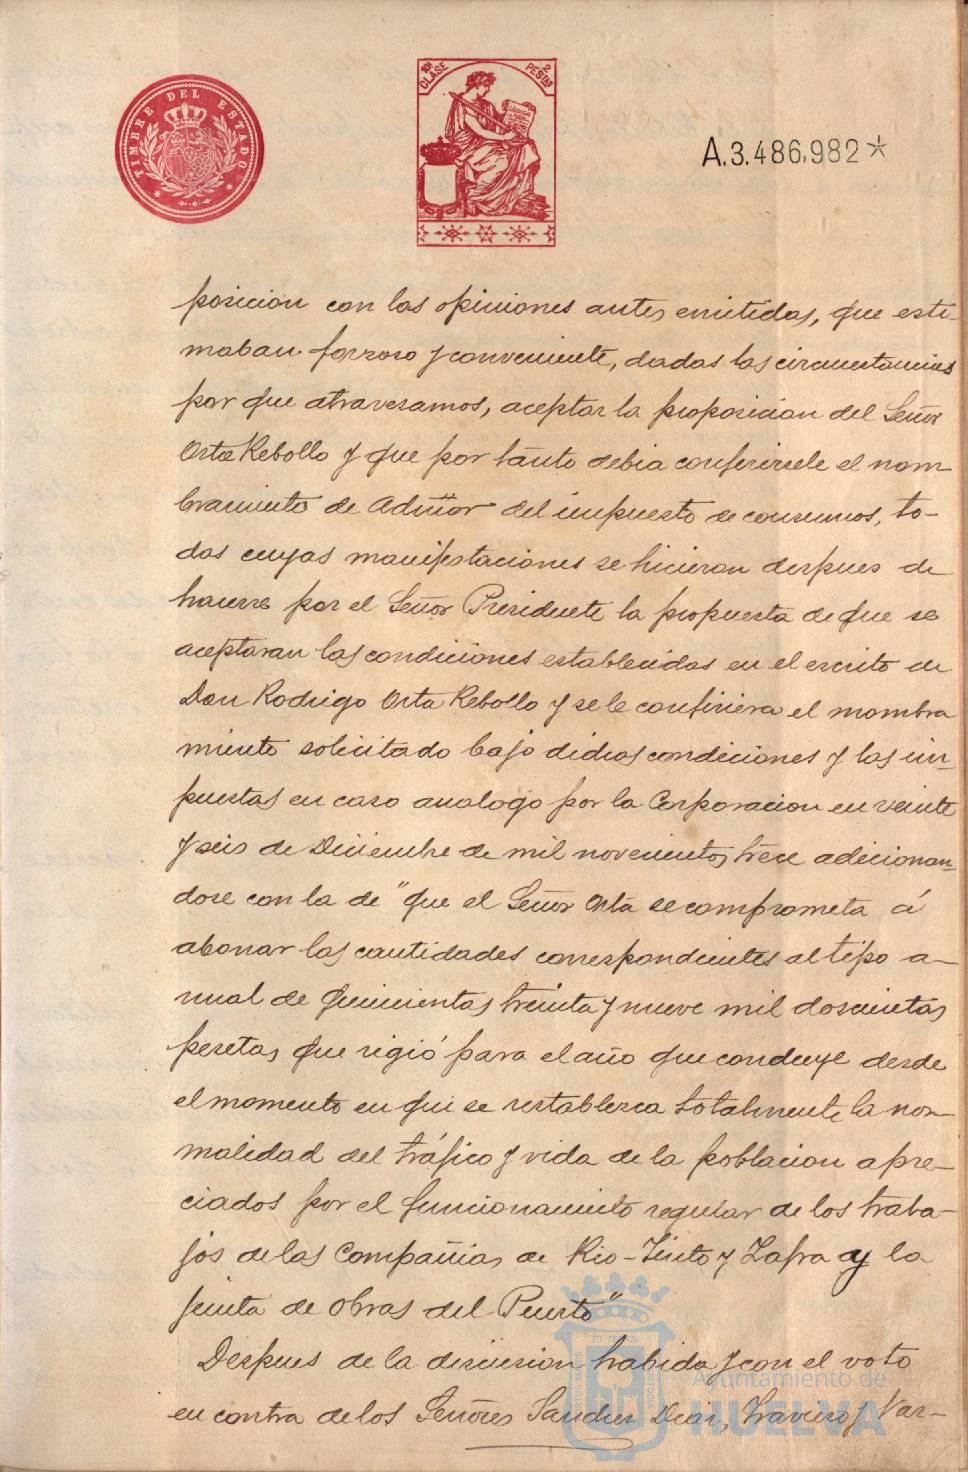 TIMBRE DEL ESTADO
10ª CLASE
2 PESTAS
A.3.486,982*
posicion con las opiniones antes emitidas, que esti-
maban forzoso y conveniente, dadas las circunstancias
por que atravesamos, aceptar la proposicion del Señor
Orta Rebollo y que por tanto debia conferirsele el nom-
bramiento de Admor del impuesto de consumos, to-
das cuyas manifestaciones se hicieron despues de
hacerse por el Señor Presidente la propuesta de que se
aceptaran las condiciones establecidas en el escrito de
Don Rodrigo Orta Rebollo y se le confiriera el nombra
miento solicitado bajo dichas condiciones y las im-
puestas en caso analogo por la Corporacion en veinte
y seis de Diciembre de mil novecientos trece adicionan-
dose con la de "que el Señor Orta se comprometa á
abonar las cantidades correspondientes al tipo a-
nual de quinientas treinta y nueve mil doscientas
pesetas que rigió para el año que concluye desde
el momento en que se restablezca totalmente la nor-
malidad del tráfico y vida de la poblacion apre-
ciados por el funcionamiento regular de los traba-
jos de las Compañias de Rio-Tinto y Zafra y la
junta de Obras del Puerto"
Despues de la discusion habida y con el voto
en contra de los Señores Sanchez Diaz, Travieso y Var-
Ayuntamiento de
HUELVA